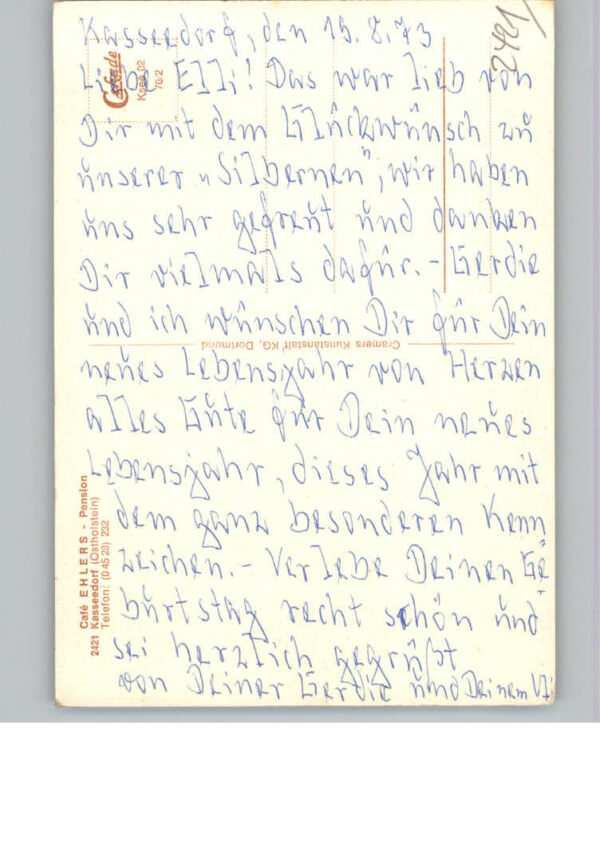 Kasseedorf, den 15.8.73
Liebe Elli! Das war lieb von
Dir mit dem Glückwünsch zu
unserer „Silbernen", wir haben
uns sehr gefreut und danken
Dir vielmals dafür. - Gerdie
und ich wünschen Dir für Dein
neues Lebensjahr von Herzen
alles Gute für Dein neues
Lebensjahr, dieses Jahr mit
dem ganz besonderen Kenn
zeichen. - Verlebe Deinen Ge
burtstag recht schön und
sei herzlich gegrüßt
von Deiner Gerdie und Deinem
2421
Cekade
Ksee 02
70/2
Cramers Kunstanstalt KG, Dortmund
Café EHLERS - Pension
2421 Kasseedorf (Ostholstein)
Telefon: (0 45 28) 232